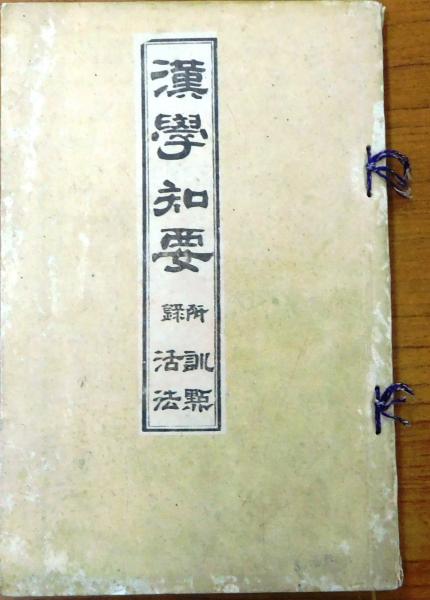 漢學知要
附訓點
錄活法